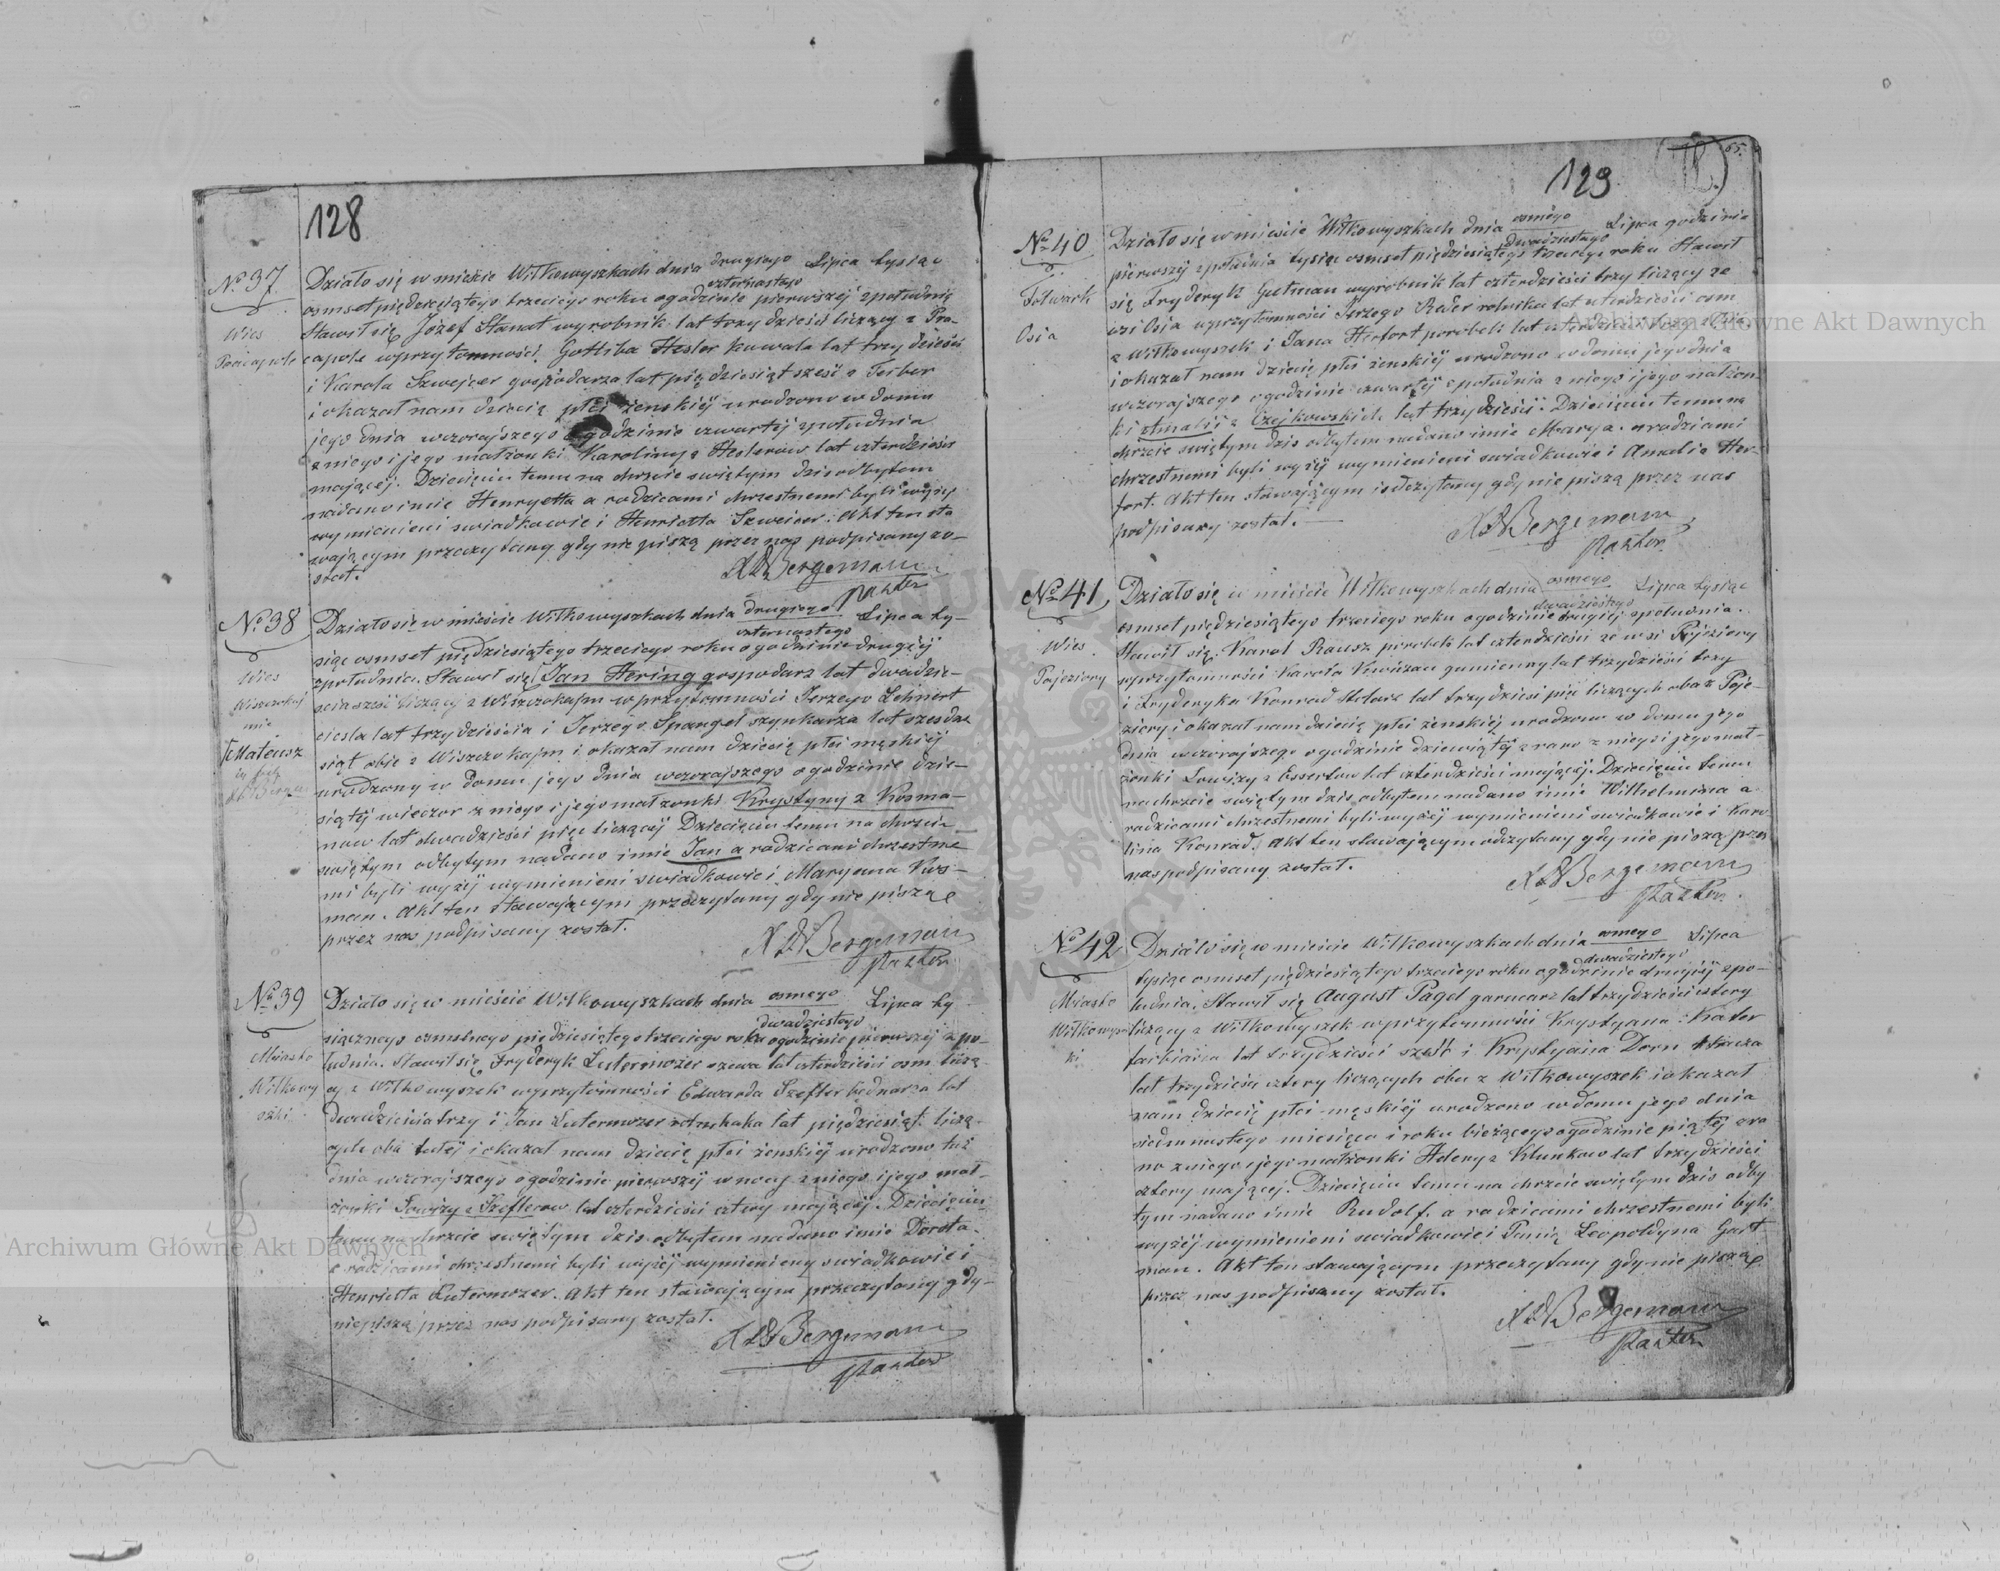 128
No 37
Wies
Działo się w mieście Wiłkowyszkach dnia drugiego/czternastego Lipca tysiąc
osmset pięćdziesiątego trzeciego roku o godzinie pierwszej z południa
Stawił się Józef Stanat wyrobnik lat trzydzieści liczący z Po-
capola w przytomności Gottliba Hesler kowala lat trzydzieści
i Karola Szwejcer gospodarza lat pięćdziesiąt szesć z Terber
i okazał nam dziecię płci żenskiéj urodzono w domu
jego dnia wczorajszego o godzinie czwartéj z południa
z niego i jego małżonki Karoliny z Heslerow lat czterdzieści
mającéj. Dziecięciu temu na chrzcie swiętym dzis odbytem
nadano imie Henryetta a rodzicami chrzestnemi byli wyżej
wymienieni swiadkowie i Henrietta Szweicer. Akt ten sta
wającym przeczytany gdy nie piszą przez nas podpisany zo-
stał.
Bergemann
Pastor
No 38
Wies
Mateusz
Działo się w mieście Wiłkowyszkach dnia drugiego/czternastego Lipca ty-
siąc osmset pięćdziesiątego trzeciego roku o godzinie drugiéj
z południa. Stawił się Jan Hering gospodarz lat dwadzie-
scia szesć liczący z Wiszczokajm w przytomności Jerzego Lehnert
ciesla lat trzydzieścia i Jerzego Spangel szynkarza lat szesdzie
siąt obie z Wiszczokajm i okazał nam dziecię płci męskiéj
urodzony w domu jego dnia wczorajszego o godzinie dzie-
siątéj wieczor z niego i jego małżonki Krystyny z Kosma-
now lat dwadzieści pięc liczącéj Dziecięciu temu na chrzcie
swiętym odbytym nadano imie Jan a rodzicami chrzestne
mi byli wyżéj wymienieni swiadkowie i Maryanna Kos-
man. Akt ten stawającym przeczytany gdy nie piszące
przez nas podpisany został.
Bergemann
Pastor
No 39
Miasto
Wiłkowy
szki
Działo się w mieście Wiłkowyszkach dnia osmego/dwadziestego Lipca ty
siącznego osmsetnego pięćdziesiątego trzeciego roku o godzinie pierwszéj z po-
łudnia. Stawił się Fryderyk Lutermozer szewc lat czterdzieści osm liczą
cy z Wiłkowyszek w przytomności Edwarda Szefler bednarza lat
dwadzieścia trzy i Jan Lutermozer rolnikaka lat pięćdziesiąt liczą
cych oba tutéj i okazał nam dziecię płci żenskiéj urodzono tuż
dnia wczorajszego o godzinie pierwszéj w nocy z niego i jego mał-
żonki Lowizy z Szeflerow lat czterdzieści cztery mającéj. Dziecięciu
temu na chrzcie swiętym dzis odbytem nadano imie Dorota.
a rodzicami chrzestnemi byli wyżéj wymienieny swiadkowie i
Henrietta Lutermozer. Akt ten stawającym przeczytany gdy-
niepiszą przez nas podpisany został.
Bergemann
Pastor
129
65.
No 40
Folwark
Osia
Działo się w mieście Wiłkowyszkach dnia osmego/dwadziestego Lipca godzinie
pierwszéj z południa tysiąc osmset pięćdziesiątego trzeciego roku Stawił
się Fryderyk Gutman wyrobnik lat czterdzieści trzy liczący ze
wsi Osia w przytomności Jerzego Reder rolnika lat czterdzieści osm
z Wiłkowyszek i Jana Herfort parobek lat czterdzieści
i okazał nam dziecię płci żenskiéj urodzono w domu jego dnia
wczorajszego o godzinie czwartéj z południa z niego i jego małżon-
ki Amalii z Czejkowskich lat trzydzieści. Dziecięciu temu na
chrzcie swiętym dzis odbytem nadano imie Marya. a rodzicami
chrzestnemi byli wyżéj wymienieni swiadkowie i Amalia Her-
fort. Akt ten stawającym i odczytany gdy nie piszą przez nas
podpisany został.
Bergemann
Pastor
No 41
Wies
Pojeziory
Działo się w mieście Wiłkowyszkach dnia osmego/dwadziestego Lipca tysiąc
osmset pięćdziesiątego trzeciego roku o godzinie drugiéj z południa.
Stawił się Karol Rausz parobek lat czterdzieści ze wsi Pojeziory
w przytomności Karola gumienny lat trzydzieści trzy
i Fryderyka Konrad stolarz lat trzydzieści pięc liczących oba z Poje-
ziory i okazał nam dziecię płci żenskiéj urodzono w domu jego
dnia wczorajszego o godzinie dziewiątéj z rana z niego i jego mał-
żonki Lowizy z Essertow lat czterdzieści mającéj. Dziecięciu temu
na chrzcie swiętym dzis odbytem nadano imie Wilhelmina a
rodzicami chrzestnemi byli wyżéj wymienieni swiadkowie i Karo
lina Konrad. Akt ten stawającym odczytany gdy nie piszą przez
nas podpisany został.
Bergemann
Pastor.
No 42
Miasto
Wiłkowysz
ki
Działo się w mieście Wiłkowyszkach dnia osmego/dwadziestego Lipca
tysiąc osmset pięćdziesiątego trzeciego roku o godzinie drugiéj z po-
łudnia. Stawił się August Pagel garncarz lat trzydzieści cztery
liczący z Wiłkowyszek w przytomności Krystyana Kater
farbiarza lat trzydzieści szesć i Krystyana Dorn tkacza
lat trzydzieści cztery liczących oba z Wiłkowyszek i okazał
nam dziecię płci męskiéj urodzono w domu jego dnia
siedmnastego miesięca i roku bieżącego o godzinie piątéj z ra
na z niego i jego małżonki Heleny z Klunkow lat trzydzieści
cztery mającéj. Dziecięciu temu na chrzcie swiętym dzis odby
tym nadano imie Rudolf. a rodzicami chrzestnemi byli
wyżéj wymienieni swiadkowie i Panią Leopoldyna Gut-
man. Akt ten stawającym przeczytany gdy nie piszące
przez nas podpisany został.
Bergemann
Pastor
Archiwum Główne Akt Dawnych
Archiwum Główne Akt Dawnych